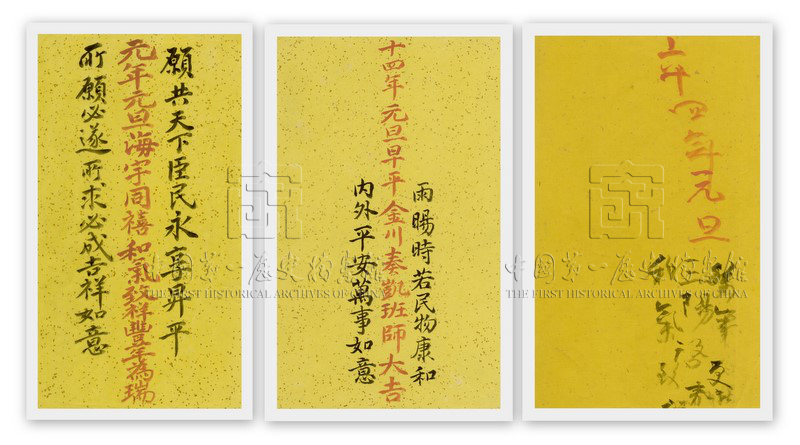 願共天下臣民永享昇平
元年元旦海宇同禧和氣致祥豐年為瑞
所願必遂所求必成吉祥如意
雨暘時若民物康和
十四年元旦早平金川奏凱班師大吉
內外平安萬事如意
四年元旦
年更
三陽啓泰
和氣致
中國第一歷史檔案館
THE FIRST HISTORICAL ARCHIVES OF
中國第一歷史檔案館
THE FIRST HISTORICAL ARCHIVES OF CHINA